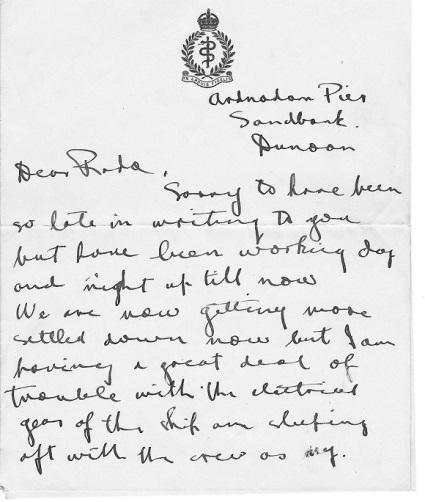 Ardnadam Pier
Sandbank.
Dunoon
Dear
Sorry to have been
so late in writing to you
but have been working day
and night up till now
We are now getting more
settled down now but I am
having a great deal of
trouble with the electrical
gear of the ship am sleeping
aft with the crew as my.